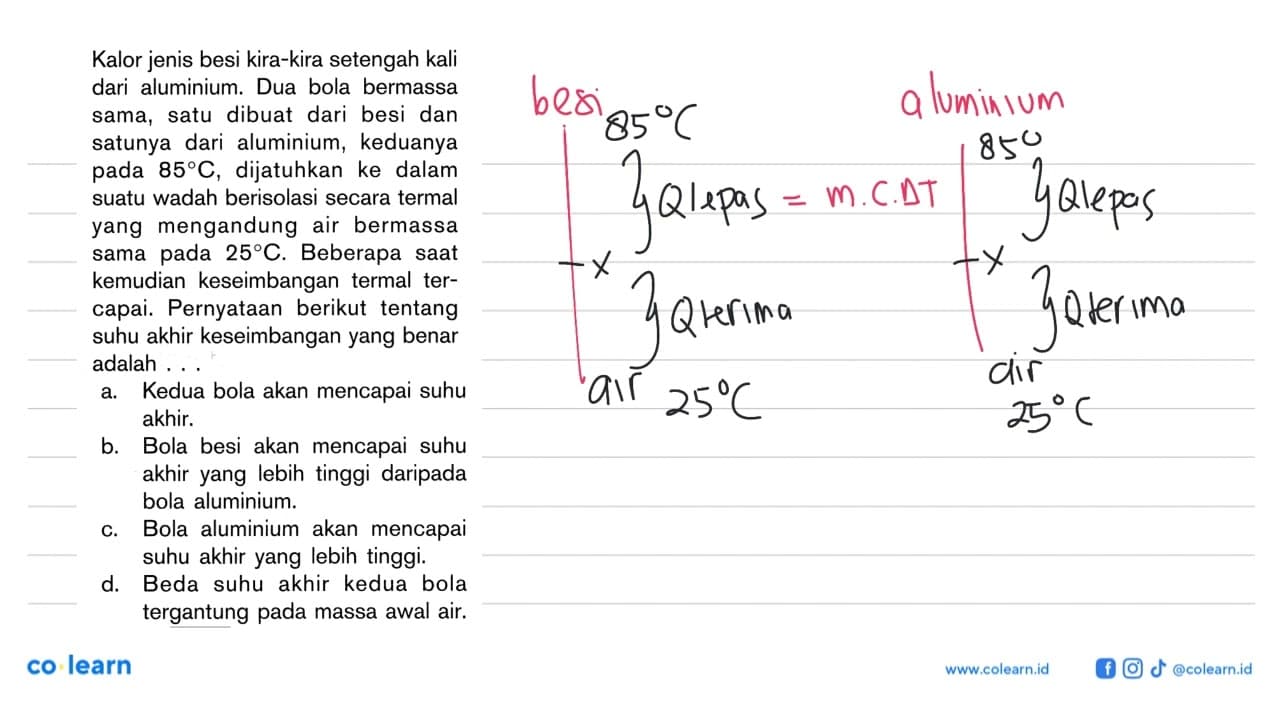 Kalor jenis besi kira-kira setengah kali
dari aluminium. Dua bola bermassa
sama, satu dibuat dari besi dan
satunya dari aluminium, keduanya
pada 85°C, dijatuhkan ke dalam
suatu wadah berisolasi secara termal
yang mengandung air bermassa
sama pada 25°C. Beberapa saat
kemudian keseimbangan termal ter-
capai. Pernyataan berikut tentang
suhu akhir keseimbangan yang benar
adalah . . .
a. Kedua bola akan mencapai suhu
akhir.
b. Bola besi akan mencapai suhu
akhir yang lebih tinggi daripada
bola aluminium.
c. Bola aluminium akan mencapai
suhu akhir yang lebih tinggi.
d. Beda suhu akhir kedua bola
tergantung pada massa awal air.
besi
85°C
Qlepas = m.C.ΔT
x
Qterima
air 25°C
aluminium
85°
Qlepas
x
Qterima
air
25°C
co·learn
www.colearn.id
@colearn.id